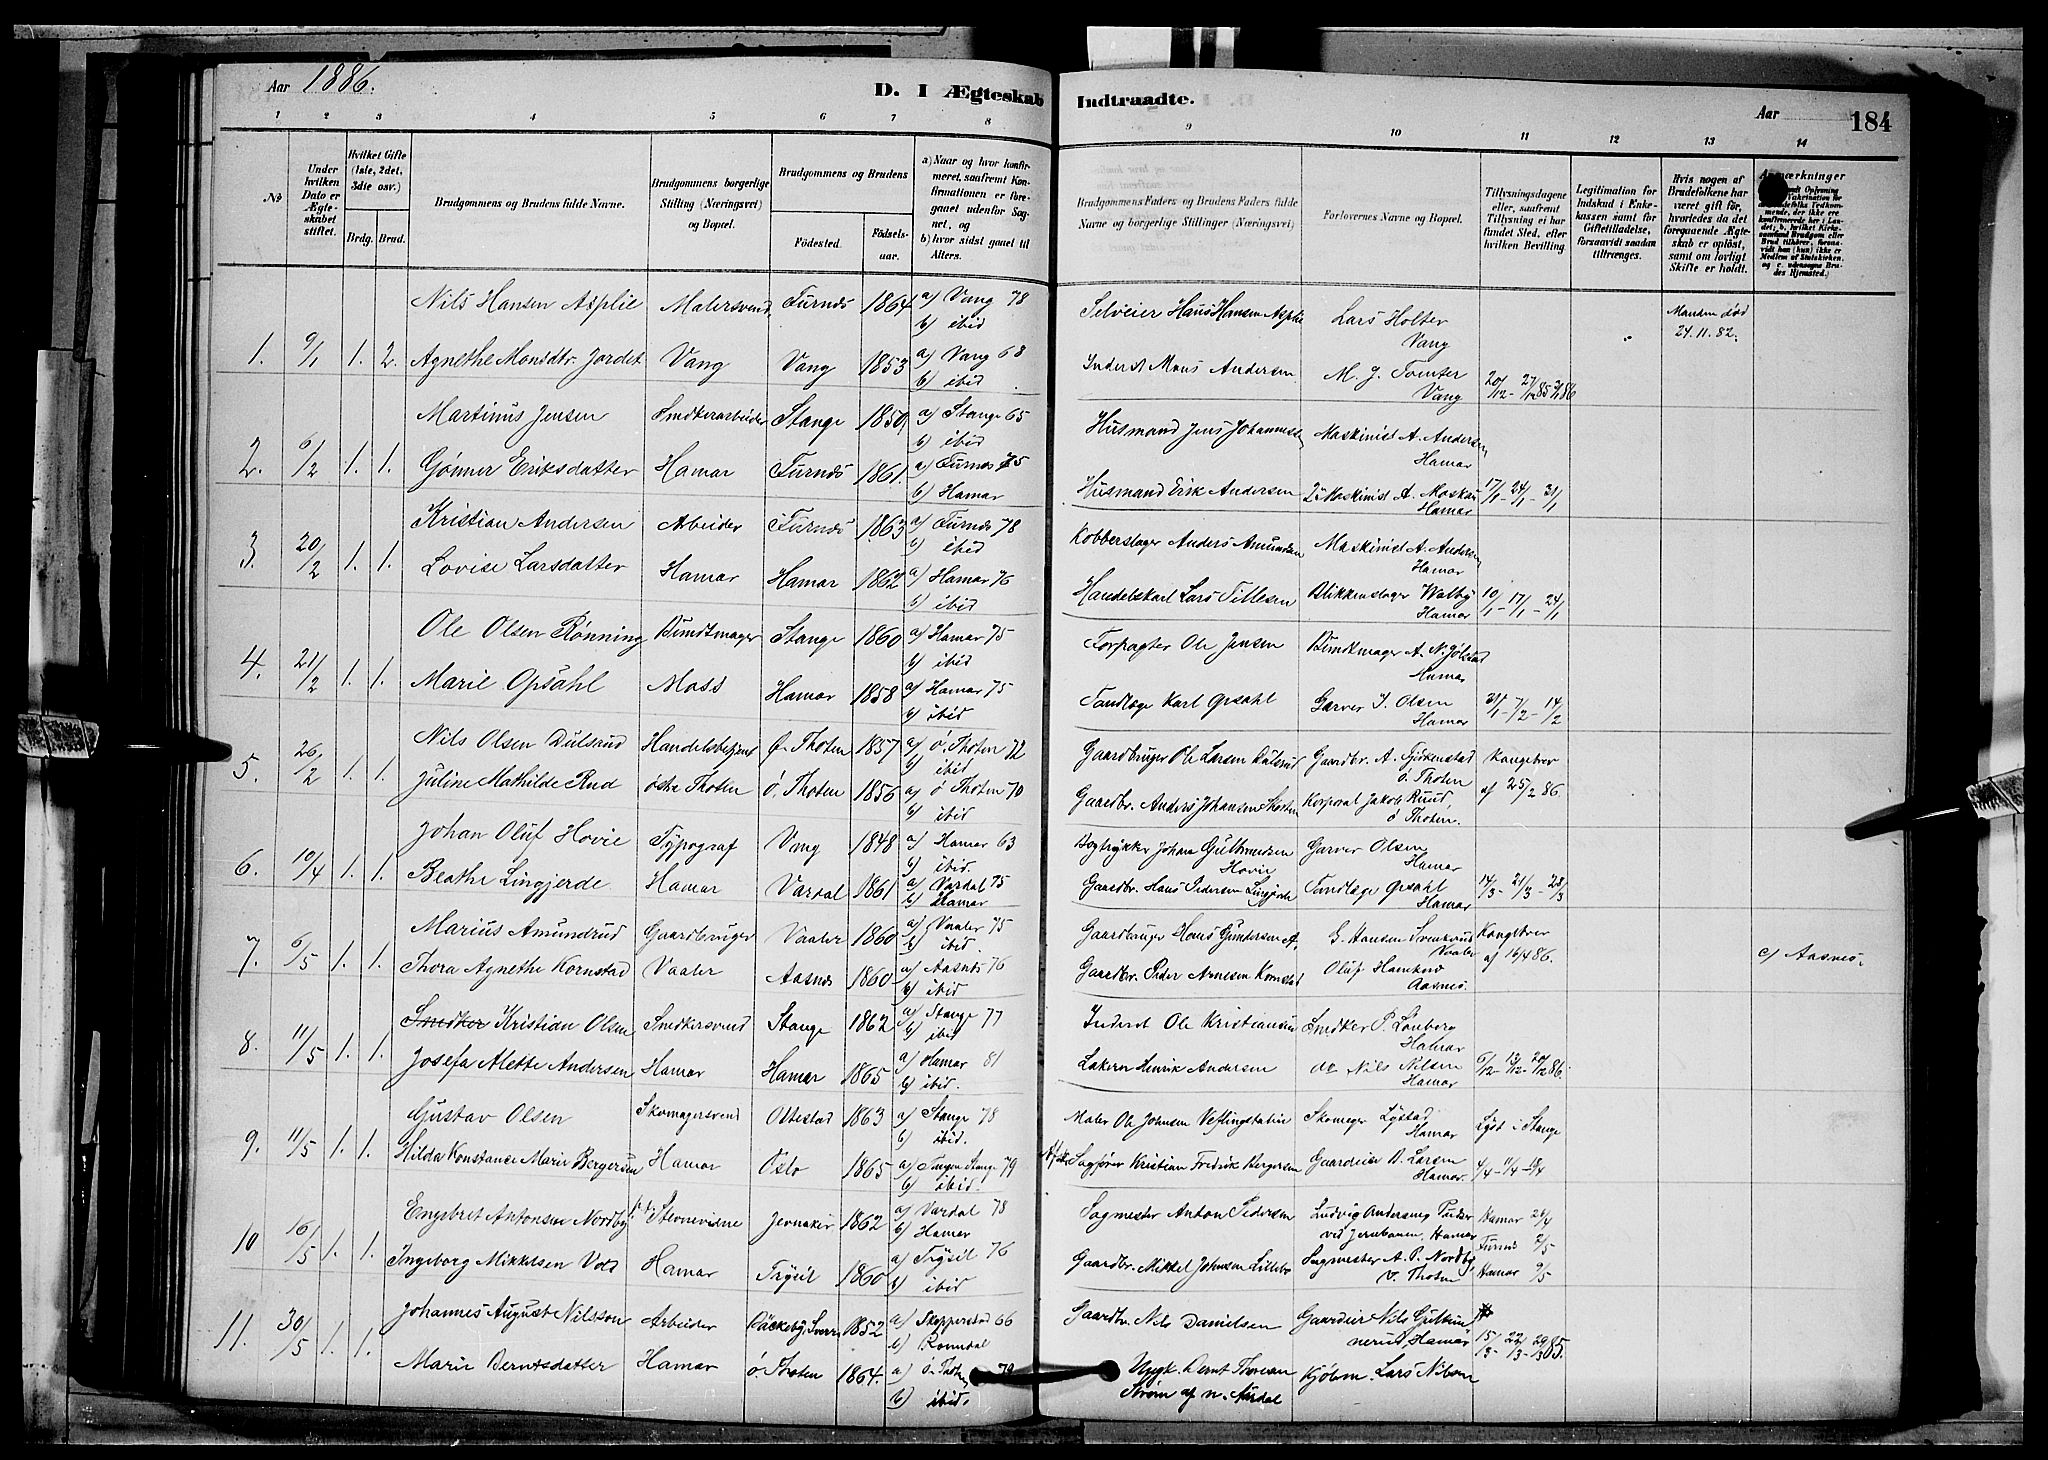 Aar 1886.
D. I Ægteskab Indtraadte.
Aar
184
1 2 3 4 5 6 7 8 9 10 11 12 13 14
No
Under hvilken Dato er Ægteskabet stiftet.
Hvilket Gifte (1ste, 2det, 3die osv.)
Brdg. Brud.
Brudgommens og Brudens fulde Navne.
Brudgommens borgerlige Stilling (Næringsvei) og Bopæl.
Brudgommens og Brudens
Födested. Födselsaar.
a) Naar og hvor konfirmeret, saafremt Konfirmationen er foregaaet udenfor Sognet, og
b) hvor sidst gaaet til Alters.
Brudgommens Faders og Brudens Faders fulde Navne og borgerlige Stillinger (Næringsvei)
Forlovernes Navne og Bopæl.
Tillysningsdagene eller, saafremt Tillysning ei har fundet Sted, efter hvilken Bevilling.
Legitimation for Indskud i Enkekassen samt for Giftetilladelse, forsaavidt saadan tiltrænges.
Hvis nogen af Brudefolkene har været gift før, hvorledes da det foregaaende Ægteskab er opløst, samt om lovligt Skifte er holdt.
1. 9/1 1. 2.
Nils Hansen Asplie Malersvend Furnds 1864 a) Vang 78 b) ibid Selveier Hans Hansen Asplie Lars Holter Vang Manden død 24.11.82.
Agnethe Monsdtr. Jordet Vang Vang 1853 a) Vang 68 b) ibid Inderst Mons Andersen M. J. Tomter Vang 20/12 - 27/12 85 3/1 86
2. 6/2 1. 1.
Martinus Jensen Smdkerarbeider Stange 1850 a) Stange 65 b) ibid Husmand Jens Johannesen Maskinist A. Andersen Hamar
Gønner Eriksdatter Hamar Furnds 1861. a) Furnds 75 b) Hamar Husmand Erik Andersen Maskinist A. Hamar 17/1 - 24/1 - 31/1
3. 20/2 1. 1.
Kristian Andersen Arbeider Furnds 1863 a) Furnds 78 b) ibid Kobberslager Anders Amundsen Maskinist A. Andersen Hamar
Lovise Larsdatter Hamar Hamar 1862 a) Hamar 76 b) ibid Handelskarl Lars Tillesen Blikkenslager Walby Hamar 10/1 - 17/1 - 24/1
4. 21/2 1. 1.
Ole Olsen Rønning Bundtmager Stange 1860 a) Hamar 75 b) ibid Forpagter Ole Jensen Bundtmager A. N. Jølstad Hamar
Marie Opsahl Moss Hamar 1858 a) Hamar 75 b) ibid Tandlæge Karl Opsahl Garver J. Olsen Hamar 31/1 - 7/2 - 14/2
5. 26/2 1. 1.
Nils Olsen Dulsrud Handelsbetjent Ø. Thoten 1857 a) ö. Thoten 72 b) ibid Gaardbruger Ole Larsen Gaardbr. A. ö. Thoten Kongebrev
Juline Mathilde Rud östre Thoten ö. Thoten 1856 a) ö Thoten 70 b) ibid Gaardbr. Anders Johansen Korporal Jakob Ruud, ö Thoten. af 25/2 86.
6. 10/4 1. 1.
Johan Oluf Hovie Typograf Vang 1848 a) Hamar 63 b) ibid. Bogtrykker Johan Gulbrandsen Hovie Garver Olsen Hamar
Beathe Lingjerde Hamar Vardal 1861 a) Vardal 75 b) Hamar Gaardbr. Hans Pedersen Lingjerde Tandlæge Opsahl Hamar 14/3 - 21/3 - 28/3
7. 6/5 1. 1.
Marius Amundrud Gaardbruger Vaaler 1860 a) Vaaler 75 b) ibid. Gaardbruger Hans Gundersen A. G. Hansen Vaaler Kongebrev
Thora Agnethe Kornstad Vaaler Aasnæs 1860 a) Aasnæs 76 b) ibid Gaardbr. Peder Arnesen Kornstad Oluf Aasnes. af 16/4 86. c) Aasnes.
8. 11/5 1. 1.
Smedker Kristian Olsen Smdkersvend Stange 1862 a) Stange 77 b) ibid. Inderst Ole Kristiansen Smdker P. Lonberg Hamar
Josefa Alette Andersen Hamar Hamar 1865 a) Hamar 81 b) ibid. Henrik Andersen do Nils Nilsen Hamar 6/12 - 13/12 - 20/12 86.
9. 11/5 1. 1.
Gustav Olsen Skomagersvend Ottestad 1863 a) Stange 78 b) ibid. Maler Ole Johnsen Skomager Lystad Hamar Lyst i Stange
Hilda Konstance Marie Bergersen Hamar Oslo 1865 a) Tangen Stange 79 b) ibid. Sagfører Kristian Fredrik Bergersen Gaardeier B. Larsen Hamar. 4/4 - 11/4 - 18/4
10 16/5 1. 1.
Engebret Antonsen Nordby Jevnaker 1862 a) Vardal 78 b) Hamar Sagmester Anton Pedersen Ludvig Andersen, ved Jernbanen, Hamar Hamar 24/4
Ingeborg Mikkelsen Vold Hamar Trysil 1860 a) Trysil 76 b) ibid Gaardbr. Mikkel Johnsen Lillebo Sagmester A. P. Nordby V. Thoten Furnes 2/5 Hamar 9/5
11. 30/5 1. 1.
Johannes August Nilsson Arbeider 1852 a) Skepperstad 66 b) Romedal Gaardbr. Nils Danielsen Gaardeier Nils Hamar 15/3 - 22/3 - 29/3 85.
Marie Berntsdatter Hamar ö. Thoten 1864. a) ö. Thoten 79 b) ibid. Bernt Thoresen Strøm af n. Aurdal Kjøbm. Lars Nilsen